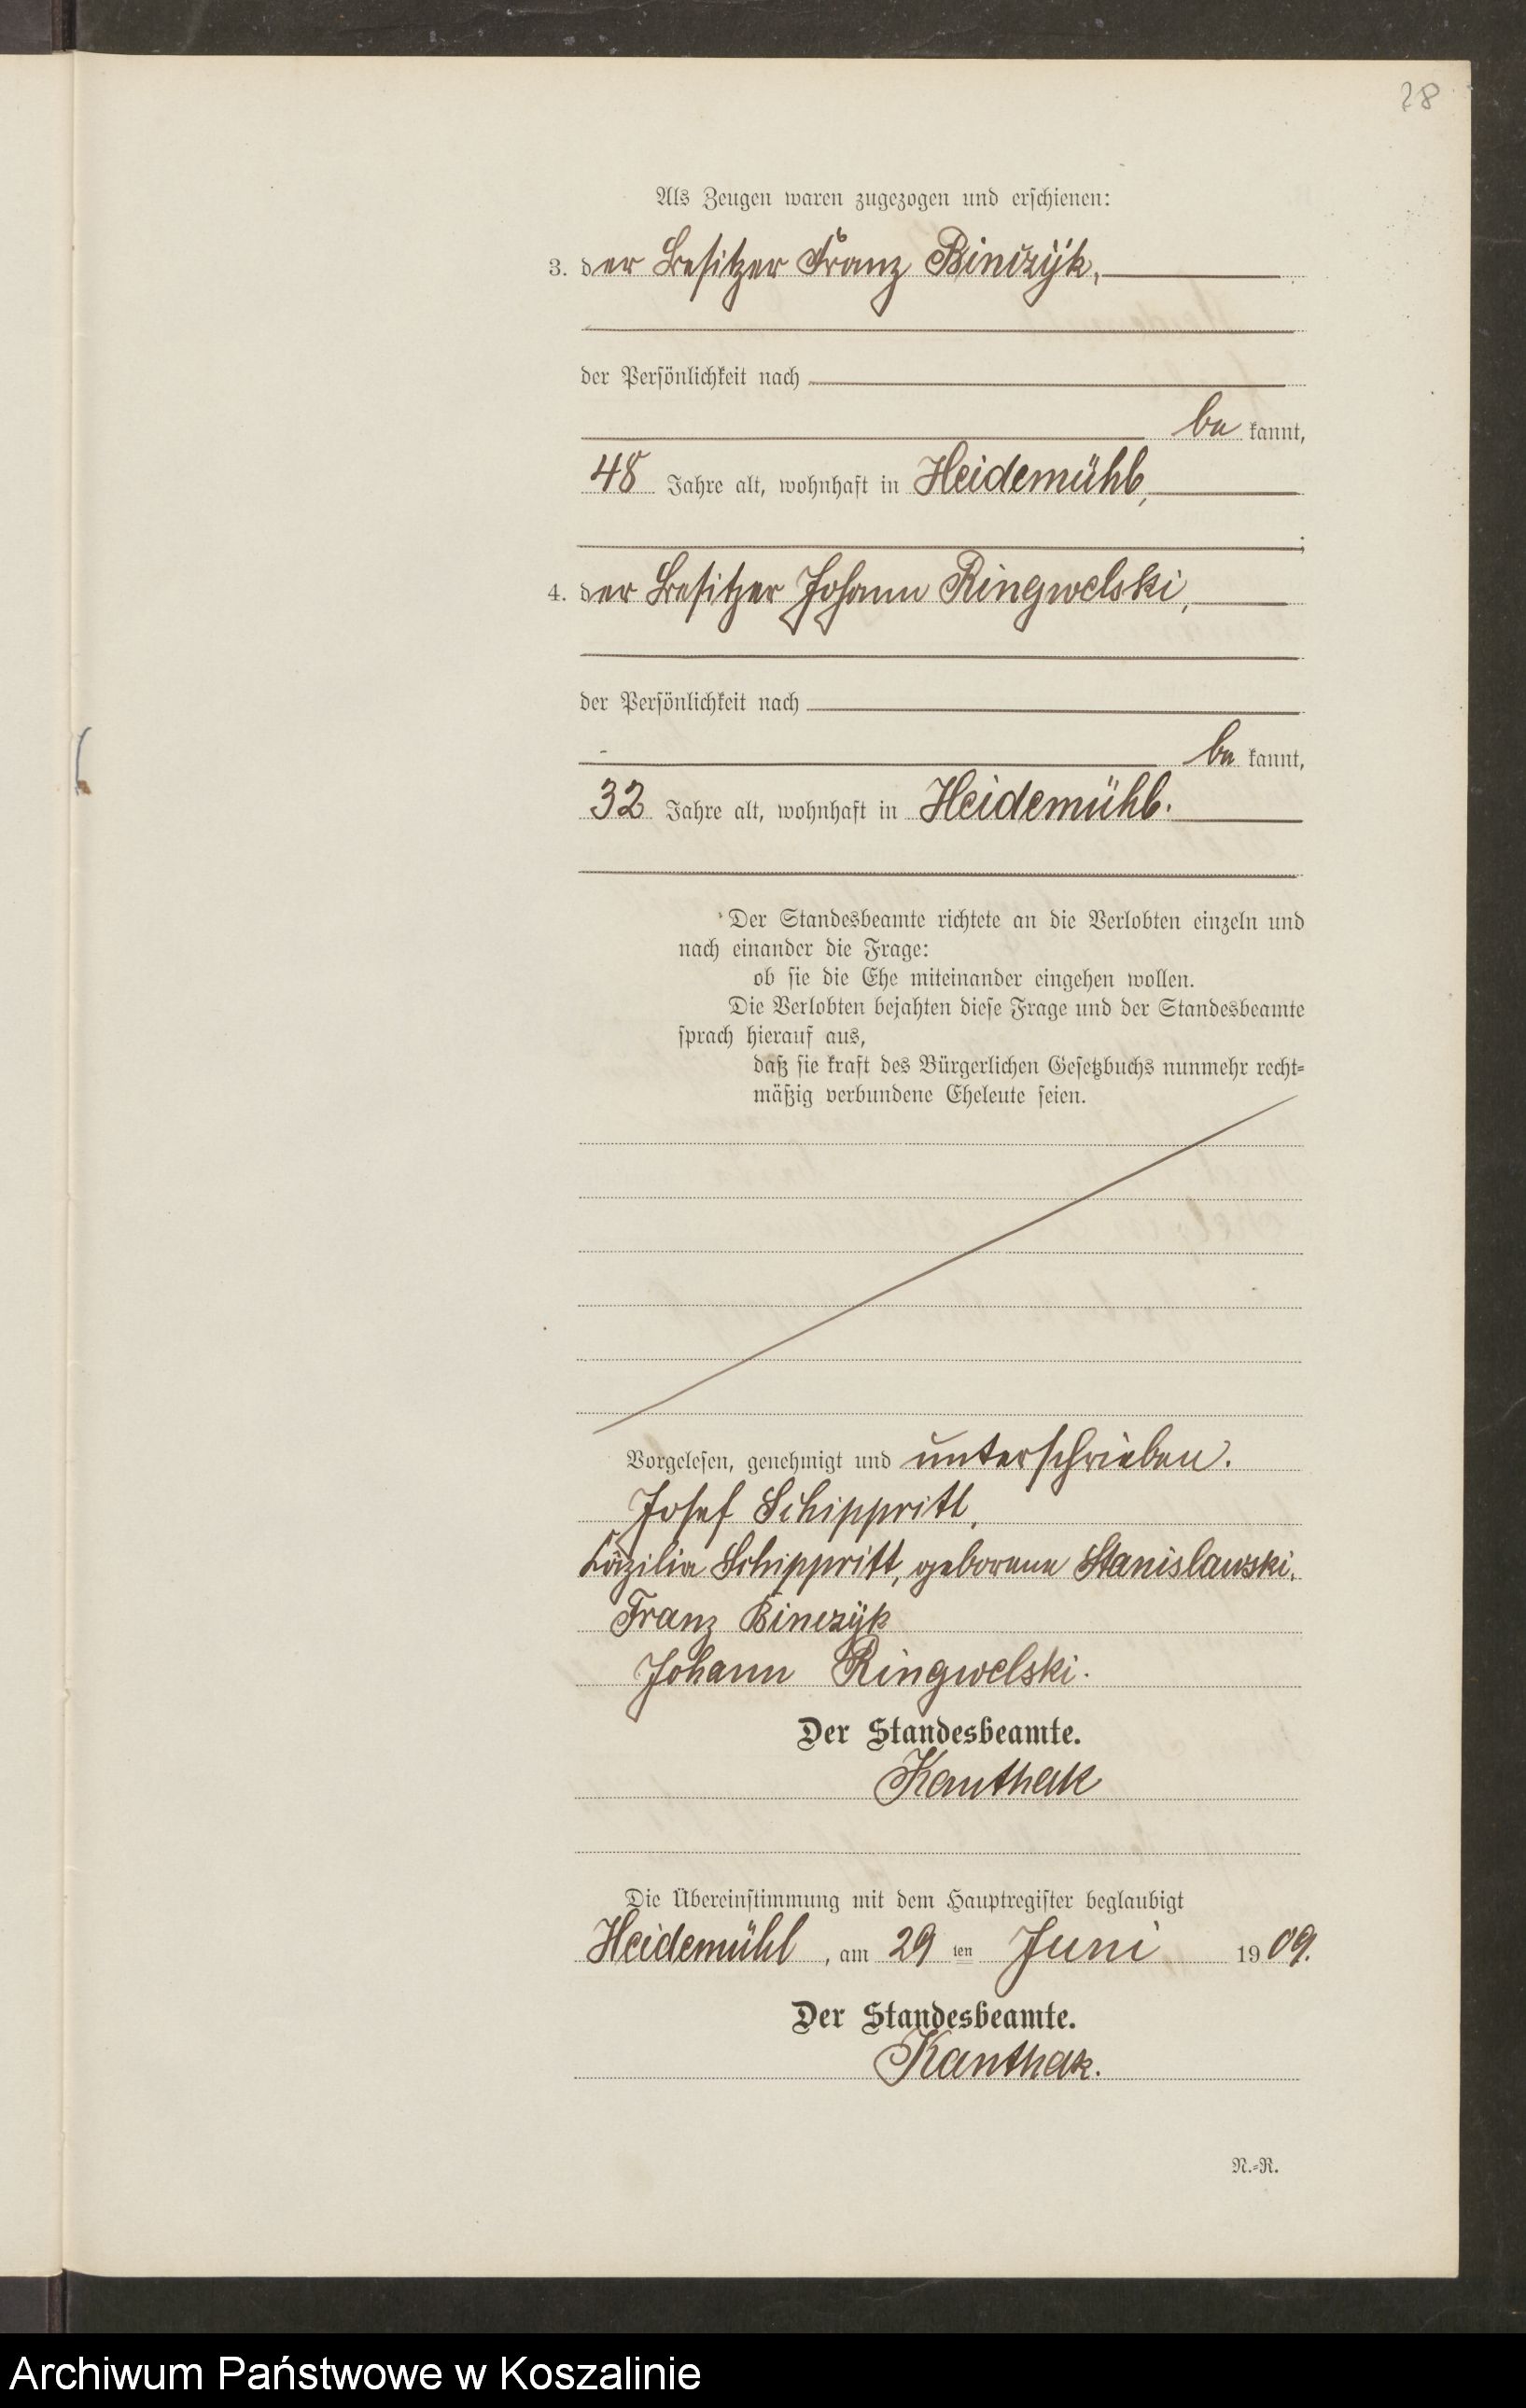 28
Als Zeugen waren zugezogen und erschienen:
3. der Besitzer Franz Binczÿk,
der Persönlichkeit nach
be kannt,
48 Jahre alt, wohnhaft in Heidemühl,
;
4. der Besitzer Johann Ringwelski,
der Persönlichkeit nach
be kannt,
32 Jahre alt, wohnhaft in Heidemühl.
Der Standesbeamte richtete an die Verlobten einzeln und
nach einander die Frage:
ob sie die Ehe miteinander eingehen wollen.
Die Verlobten bejahten diese Frage und der Standesbeamte
sprach hierauf aus,
daß sie kraft des Bürgerlichen Gesetzbuchs nunmehr recht=
mäßig verbundene Eheleute seien.
Vorgelesen, genehmigt und unterschrieben.
Josef Schippritt,
Cäzilia Schippritt, geborene Stanislawski.
Franz Binczÿk
Johann Ringwelski.
Der Standesbeamte.
Kanthak
Die Übereinstimmung mit dem Hauptregister beglaubigt
Heidemühl, am 29 ten Juni 1909.
Der Standesbeamte.
Kanthak.
N.=R.
Archiwum Państwowe w Koszalinie